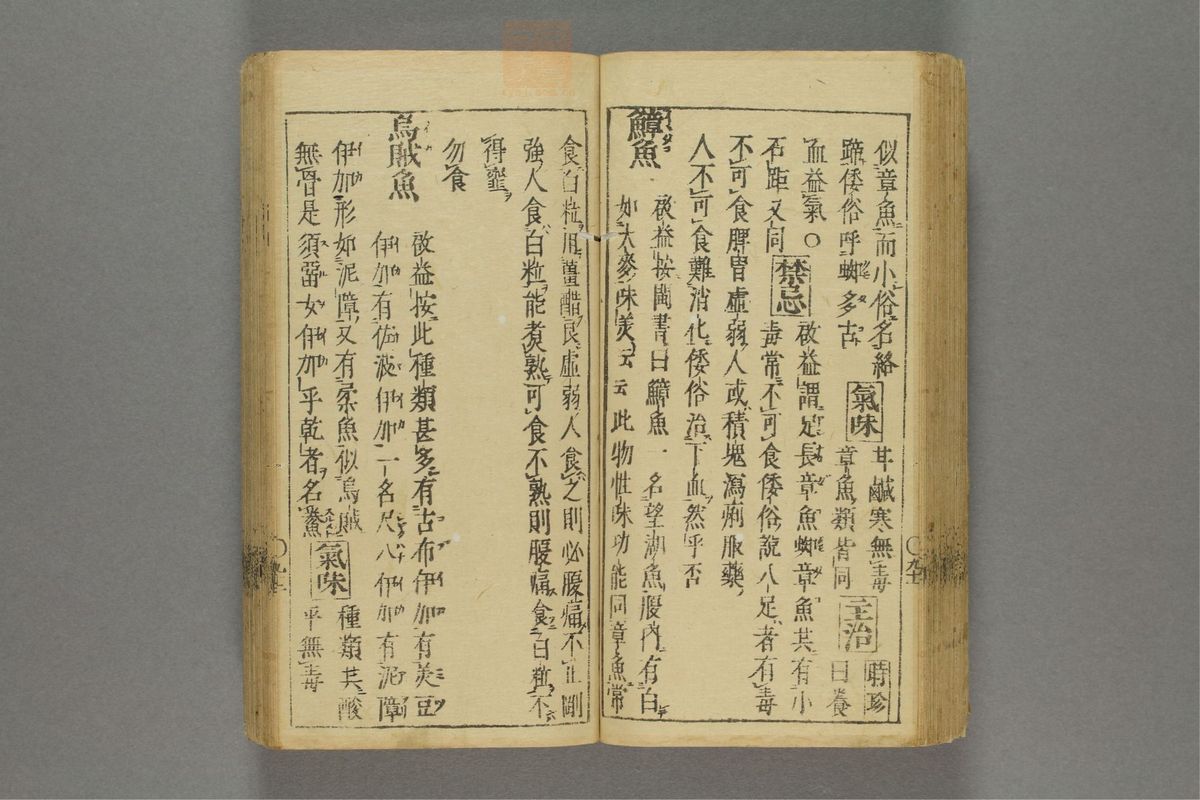 似章魚而小俗名絡
蹄倭俗呼蜘多古
氣味
甘鹹寒無毒
章魚類皆同
主治
時珍
曰養
血益氣○
石距又同
禁忌
啟益謂足長章魚蜘章魚其有小
毒常不可食倭俗說八足者有毒
不可食脾胃虛弱人或積塊瀉痢服藥
人不可食難消化倭俗治下血然乎否
鱆魚
啟益按閩書曰鱆魚一名望湖魚腹內有白
如大麥味美云云此物性味功能同章魚常
食白粒用薑醋良虛弱人食之則必腹痛不止剛
強人食白粒能煮熟可食不熟則腹痛食白粒不
得
勿食
烏賊魚
啟益按此種類甚多有古布伊加有美豆
伊加有佐波伊加一名尺八伊加有泥障
伊加形如泥障又有柔魚似烏賊
無骨是須留女伊加乎乾者名鯗
氣味
種類其酸
平無毒